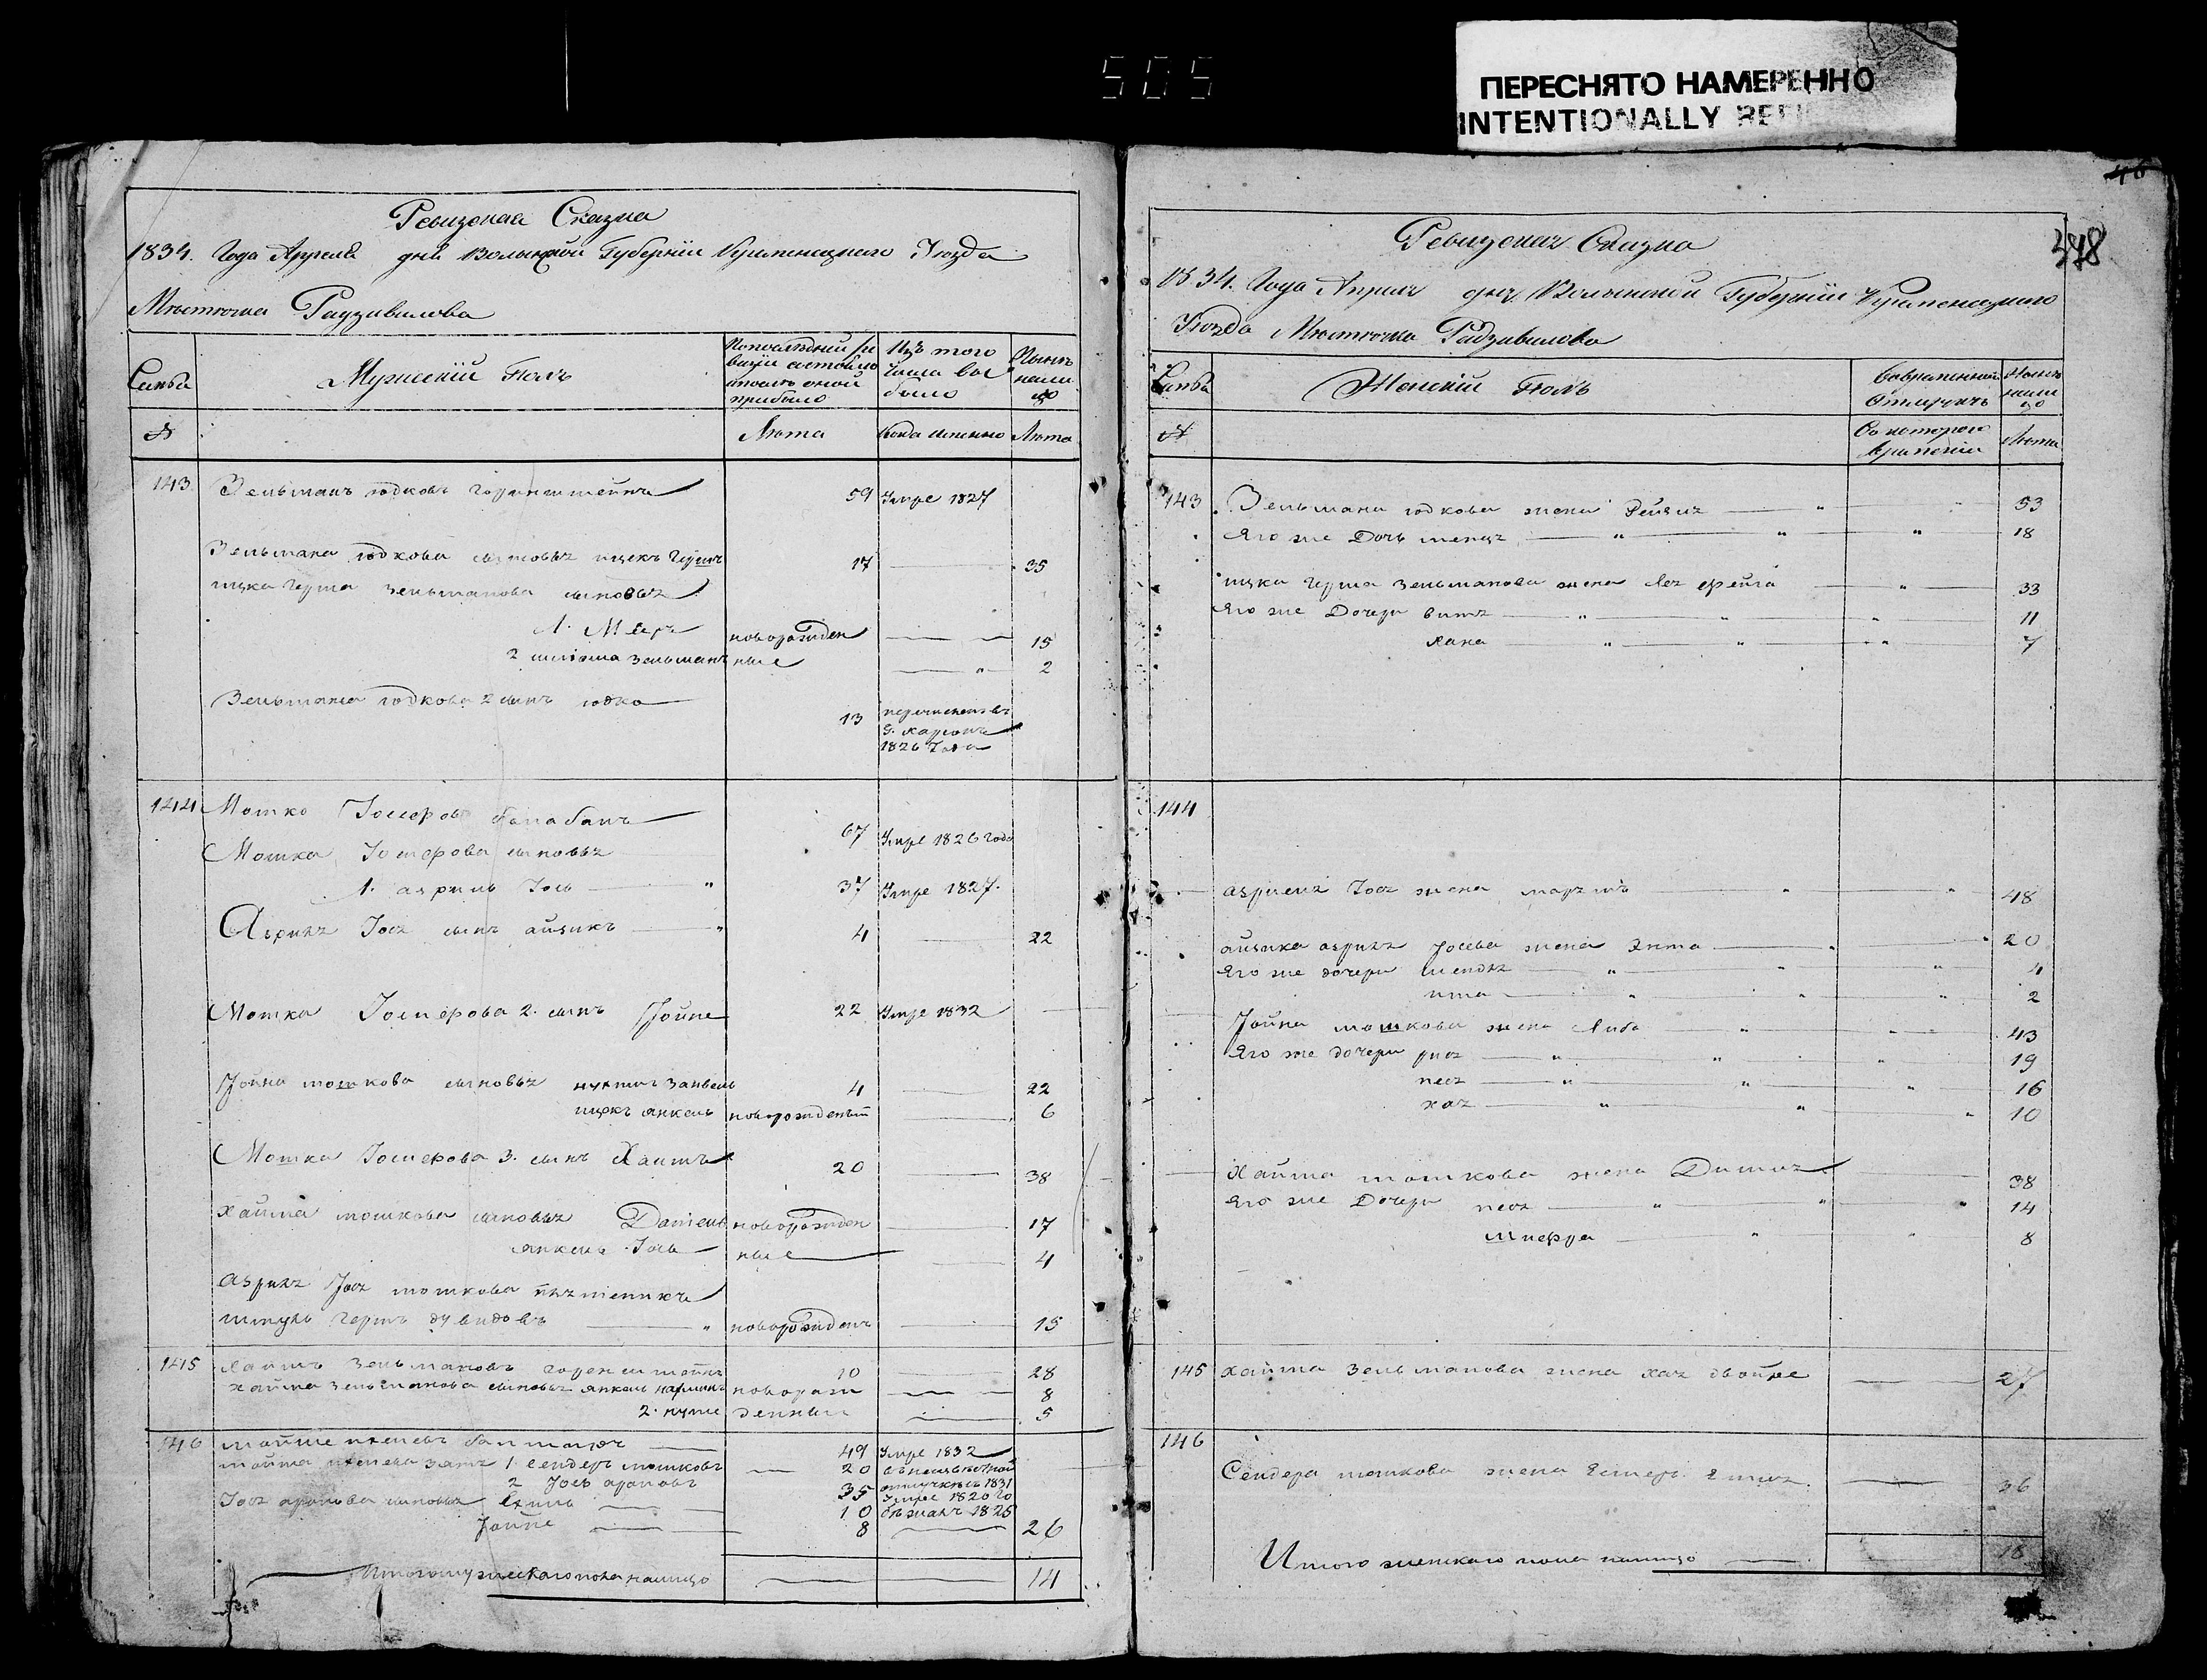 505
ПЕРЕСНЯТО НАМЕРЕННО
INTENTIONALLY
46
378
Ревизская Сказка
1834. Года Апреля дня Волынской Губернии Кременецкого Уезда
Местечка Радзивилова
Семьи
Мужеский полъ
По последней ре
визии состояло
и после оной
прибыло
Изъ того
числа вы
было
Ныне
нали
цо
№
Лета
Когда именно
Лета
143 Зельманъ юдковъ горинштейнъ 59 Умре 1827
Зельмана юдкова сыновья ицекъ Гершъ 17 35
ицка Герша зельманова сыновья
1. Меер новорожден 15
2 шлiома зельманъ ные 2
Зельмана юдкова 2 сынъ юдко 13 перечисленъ въ
г. херсонъ
1826 Года
144 Мошко Іосифовъ балабанъ 67 Умре 1826 года
Мошка Іосифова сыновья
1. азриль Іось 37 Умре 1827.
Азриля Іося сынъ айзикъ 4 22
Мошка Іосифова 2. сынъ Йойне 22 Умре 1832
Йойна мошкова сыновья занвель 4 22
ицекъ янкель новорожденый 6
Мошка Іосифова 3. сынъ Хаимъ 20 38
Хаима мошкова сыновья Даniель новорожден 17
янкель Іось ные 4
Азриля Іося мошкова племеникъ
шмуль Гершъ дувидовъ новорожденъ 15
145 Хаимъ Зельмановъ горенштейнъ 10 28
хайма Зельманова сыновья янкель новорож 8
2. денныи 5
146 мойше 49 Умре 1832
мойша зять 1. Сендеръ мошковъ 20 въ неизвестной
отлучке съ 1831
2 Іось ароновъ 35 Умре 1820 го
Іося аронова сыновья 10 бежалъ 1825
Йойне 8 26
Итого мужескаго пола налицо 14
Ревизская Сказка
1834. Года Апреля дня Волынской Губернии Кременецкого
Уезда Местечка Радзивилова
Семьи
Женский полъ
Во временной
отлучке
Ныне
нали
цо
№
Съ которого
времени
Лета
143 Зельмана юдкова жена Рейзя 53
Яго же Дочь 18
ицка Герша Зельманова жена фейга 33
Яго же Дочери 11
хана 7
144
азриля Іося жена 48
айзика азриля Йосева жена Энта 20
Яго же дочери шендля 4
ита 2
Йойна мошкова жена Либа 43
Яго же дочери рися 19
песя 16
хая 10
Хайма мошкова жена 38
Яго же Дочери песя 14
шпефра 8
145 хайма Зельманова жена хая двойре 27
146
Сендера мошкова жена Естеръ 36
Итого женскаго пола налицо 18